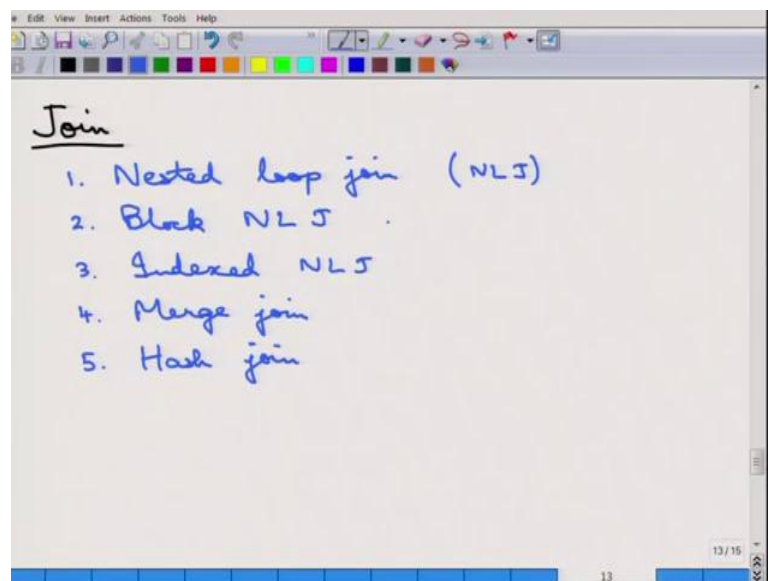 Edit View Insert Actions Tools Help
Join
1. Nested loop join (NLJ)
2. Block NLJ
3. Indexed NLJ
4. Merge join
5. Hash join
13/15
13